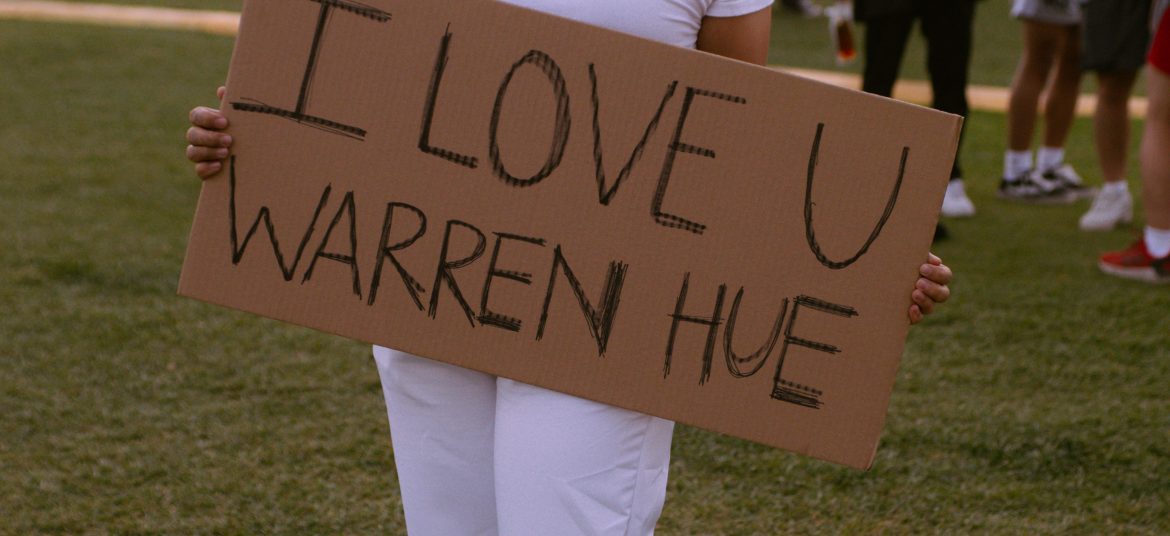 I LOVE U
WARREN HUE